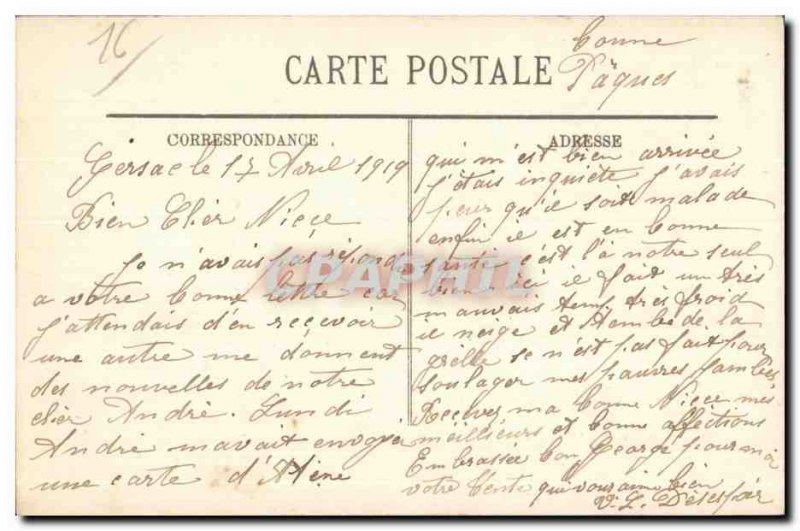 16
Bonne
CARTE POSTALE Pâques
CORRESPONDANCE
Gersac le 17 Avril 1919
Bien Chèr Nièce
Je n'avais pas répondu
a votre bonne lettre car
j'attendais d'en recevoir
une autre me donnent
des nouvelles de notre
chèr André. Lundi
André m'avait envoyé
une carte d'Atène
ADRESSE
qui m'est bien arrivée
j'étais inquiète j'avais
peur qu'il soit malade
enfin il est en bonne
santé c'est là notre seul
bien ici il fait un très
mauvais temps très froid
il neige et tombé de la
grelle se n'est pas fait pour
soulager mes pauvres jambes
Recevez ma bonne Nièce mes
meilleurs et bonne affections
Embrassee bon George pour moi
votre tente qui vous aime bien
V. L. Desespoir
CPAPHIL